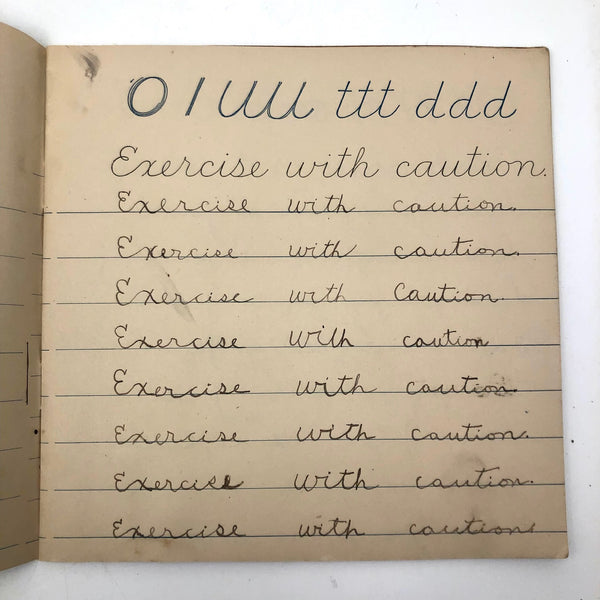 O I UU ttt ddd
Exercise with caution.
Exercise with caution.
Exercise with caution.
Exercise with Caution.
Exercise with caution
Exercise with caution.
Exercise with caution.
Exercise with caution.
Exercise with caution